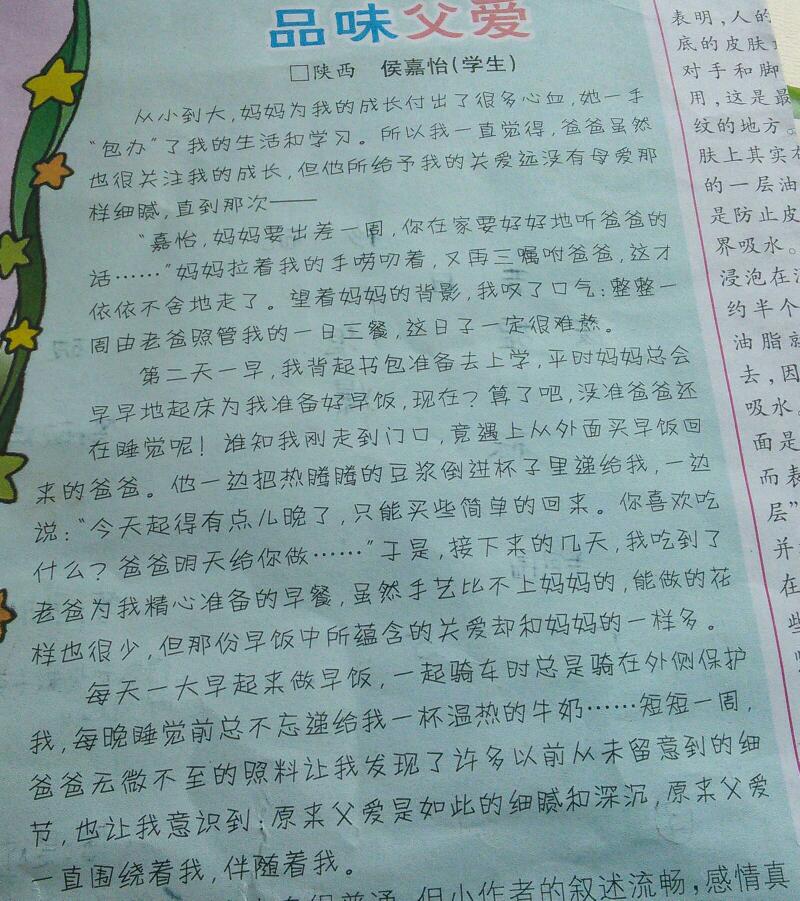 品味父爱
□陕西 侯嘉怡(学生)
从小到大,妈妈为我的成长付出了很多心血,她一手
“包办”了我的生活和学习。所以我一直觉得,爸爸虽然
也很关注我的成长,但他所给予我的关爱远没有母爱那
样细腻,直到那次——
“嘉怡,妈妈要出差一周,你在家要好好地听爸爸的
话……”妈妈拉着我的手唠叨着,又再三嘱咐爸爸,这才
依依不舍地走了。望着妈妈的背影,我叹了口气:整整一
周由老爸照管我的一日三餐,这日子一定很难熬。
第二天一早,我背起书包准备去上学,平时妈妈总会
早早地起床为我准备好早饭,现在?算了吧,没准爸爸还
在睡觉呢!谁知我刚走到门口,竟遇上从外面买早饭回
来的爸爸。他一边把热腾腾的豆浆倒进杯子里递给我,一边
说:“今天起得有点儿晚了,只能买些简单的回来。你喜欢吃
什么?爸爸明天给你做……”于是,接下来的几天,我吃到了
老爸为我精心准备的早餐,虽然手艺比不上妈妈的,能做的花
样也很少,但那份早饭中所蕴含的关爱却和妈妈的一样多。
每天一大早起来做早饭,一起骑车时总是骑在外侧保护
我,每晚睡觉前总不忘递给我一杯温热的牛奶……短短一周,
爸爸无微不至的照料让我发现了许多以前从未留意到的细
节,也让我意识到:原来父爱是如此的细腻和深沉,原来父爱
一直围绕着我,伴随着我。
很普通,但小作者的叙述流畅,感情真
表明,人的
底的皮肤
对手和脚
用,这是最
纹的地方。
肤上其实
的一层油
是防止皮
界吸水。
浸泡在
约半个
油脂就
去,因
吸水
面是
而表
层”
并
在
些